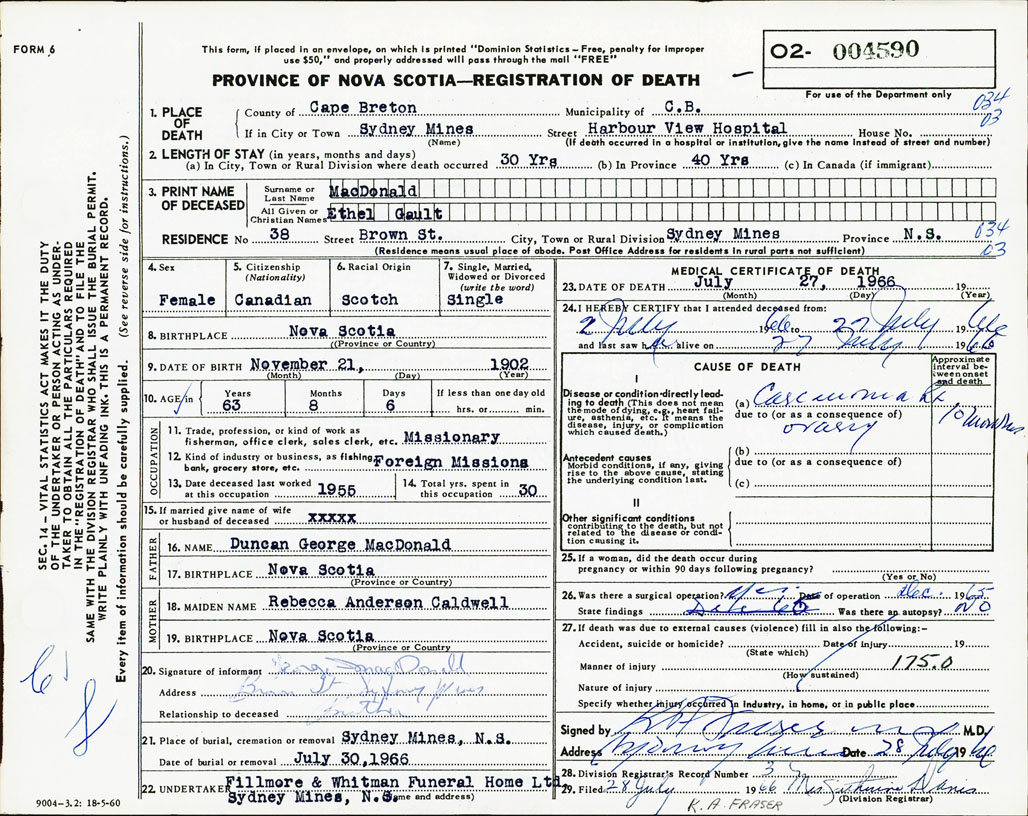 FORM 6
This form, if placed in an envelope, on which is printed "Dominion Statistics – Free, penalty for improper
use $50," and properly addressed will pass through the mail "FREE"
PROVINCE OF NOVA SCOTIA—REGISTRATION OF DEATH
02- 004590
For use of the Department only
034
03
1. PLACE OF DEATH
County of Cape Breton Municipality of C.B.
If in City or Town Sydney Mines Street Harbour View Hospital House No.
(Name) (If death occurred in a hospital or institution, give the name instead of street and number)
2. LENGTH OF STAY (in years, months and days)
(a) In City, Town or Rural Division where death occurred 30 Yrs (b) In Province 40 Yrs (c) In Canada (if immigrant)
3. PRINT NAME OF DECEASED
Surname or Last Name MacDonald
All Given or Christian Names Ethel Gault
RESIDENCE No 38 Street Brown St. City, Town or Rural Division Sydney Mines Province N.S.
034
03
(Residence means usual place of abode. Post Office Address for residents in rural parts not sufficient)
4. Sex
Female
5. Citizenship
(Nationality)
Canadian
6. Racial Origin
Scotch
7. Single, Married, Widowed or Divorced
(write the word)
Single
8. BIRTHPLACE Nova Scotia
(Province or Country)
9. DATE OF BIRTH November 21, 1902
(Month) (Day) (Year)
10. AGE in Years Months Days If less than one day old
63 8 6 hrs. or min.
OCCUPATION
11. Trade, profession, or kind of work as
fisherman, office clerk, sales clerk, etc. Missionary
12. Kind of industry or business, as fishing,
bank, grocery store, etc. Foreign Missions
13. Date deceased last worked
at this occupation 1955
14. Total yrs. spent in
this occupation 30
15. If married give name of wife
or husband of deceased xxxxx
FATHER
16. NAME Duncan George MacDonald
17. BIRTHPLACE Nova Scotia
(Province or Country)
MOTHER
18. MAIDEN NAME Rebecca Anderson Caldwell
19. BIRTHPLACE Nova Scotia
(Province or Country)
20. Signature of informant MacDonald
Address Brown St Sydney Mines
Relationship to deceased Brother
21. Place of burial, cremation or removal Sydney Mines, N.S.
Date of burial or removal July 30,1966
22. UNDERTAKER Fillmore & Whitman Funeral Home Ltd.
Sydney Mines, N.S. (Name and address)
MEDICAL CERTIFICATE OF DEATH
23. DATE OF DEATH July 27, 1966
(Month) (Day) (Year)
24. I HEREBY CERTIFY that I attended deceased from:
2 July 1966 to 27 July 1966
and last saw her alive on 27 July 1966
CAUSE OF DEATH
Approximate interval between onset and death
I
Disease or condition directly leading to death (This does not mean
the mode of dying, e.g., heart failure, asthenia, etc. It means the
disease, injury, or complication
which caused death.)
(a) Carcinoma
due to (or as a consequence of)
ovary
10 months
Antecedent causes
Morbid conditions, if any, giving
rise to the above cause, stating
the underlying condition last.
(b)
due to (or as a consequence of)
(c)
II
Other significant conditions
contributing to the death, but not
related to the disease or condition causing it.
25. If a woman, did the death occur during
pregnancy or within 90 days following pregnancy?
(Yes or No)
26. Was there a surgical operation? Yes Date of operation Dec. 1965
State findings Was there an autopsy? No
27. If death was due to external causes (violence) fill in also the following:–
Accident, suicide or homicide? Date of injury 19
(State which)
Manner of injury 175.0
(How sustained)
Nature of injury
Specify whether injury occurred in Industry, in home, or in public place
Signed by K A Fraser M.D.
Address Sydney Mines Date 28 July 1966
28. Division Registrar's Record Number 3
29. Filed 28 July 1966 Mrs. Davis
(Division Registrar)
K. A. FRASER
SEC. 14 – VITAL STATISTICS ACT MAKES IT THE DUTY
OF THE UNDERTAKER OR PERSON ACTING AS UNDERTAKER TO OBTAIN ALL THE PARTICULARS REQUIRED
IN THE "REGISTRATION OF DEATH" AND TO FILE THE
SAME WITH THE DIVISION REGISTRAR WHO SHALL ISSUE THE BURIAL PERMIT.
WRITE PLAINLY WITH UNFADING INK. THIS IS A PERMANENT RECORD.
Every item of information should be carefully supplied. (See reverse side for instructions.)
9004–3.2: 18-5-60